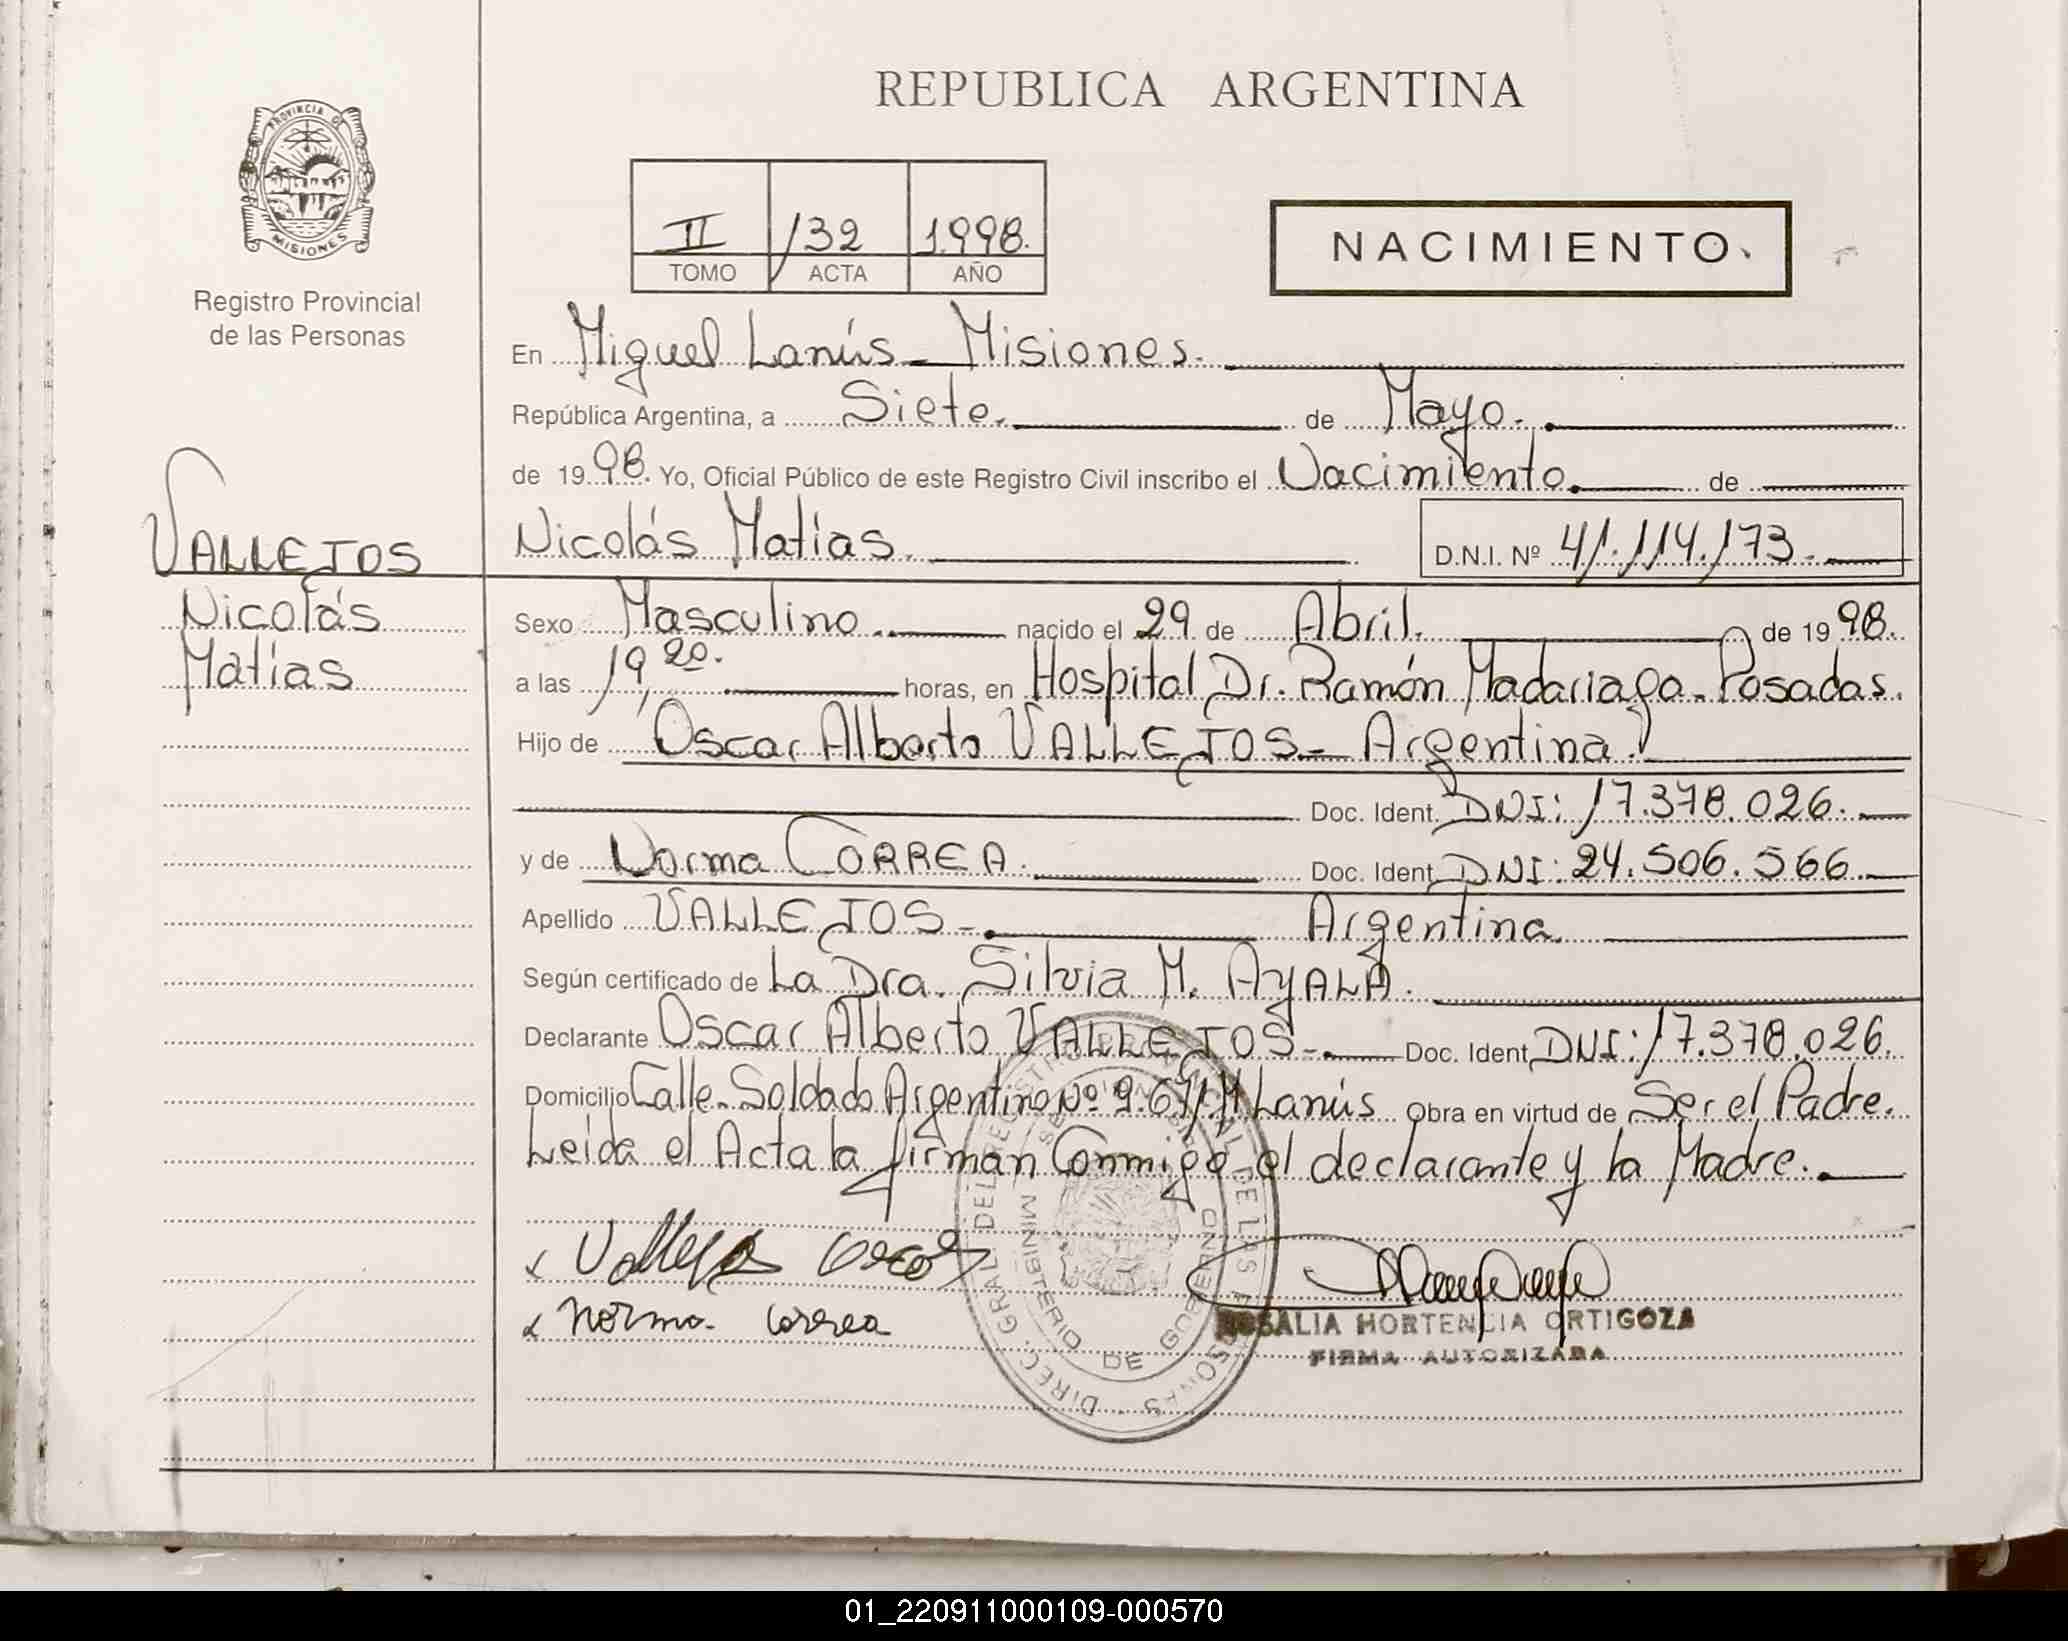 REPUBLICA ARGENTINA
PROVINCIA DE
MISIONES
Registro Provincial
de las Personas
II 132 1998.
TOMO ACTA AÑO
NACIMIENTO
En Miguel Lanús - Misiones.
República Argentina, a Siete. de Mayo.
de 19 98. Yo, Oficial Público de este Registro Civil inscribo el Nacimiento. de
VALLEJOS
Nicolás
Matías
Nicolás Matías. D.N.I. Nº 41.114.173.
Sexo Masculino. nacido el 29 de Abril. de 19 98.
a las 19,20. horas, en Hospital Dr. Ramón Madariaga - Posadas.
Hijo de Oscar Alberto VALLEJOS - Argentina.
Doc. Ident. DNI: 17.378.026.
y de Norma CORREA. Doc. Ident. DNI: 24.506.566
Apellido VALLEJOS - Argentina.
Según certificado de La Dra. Silvia M. AYALA.
Declarante Oscar Alberto VALLEJOS - Doc. Ident. DNI: 17.378.026.
Domicilio Calle Soldado Argentino Nº 9.671 M. Lanús Obra en virtud de Ser el Padre.
Leída el Acta la firman Conmigo el declarante y la Madre.
x Vallejos Oscar
x Norma Correa
DIREC. GRAL. DEL REGISTRO PROVINCIAL DE LAS PERSONAS
MINISTERIO DE GOBIERNO
ROSALIA HORTENCIA ORTIGOZA
FIRMA AUTORIZADA
01_220911000109-000570